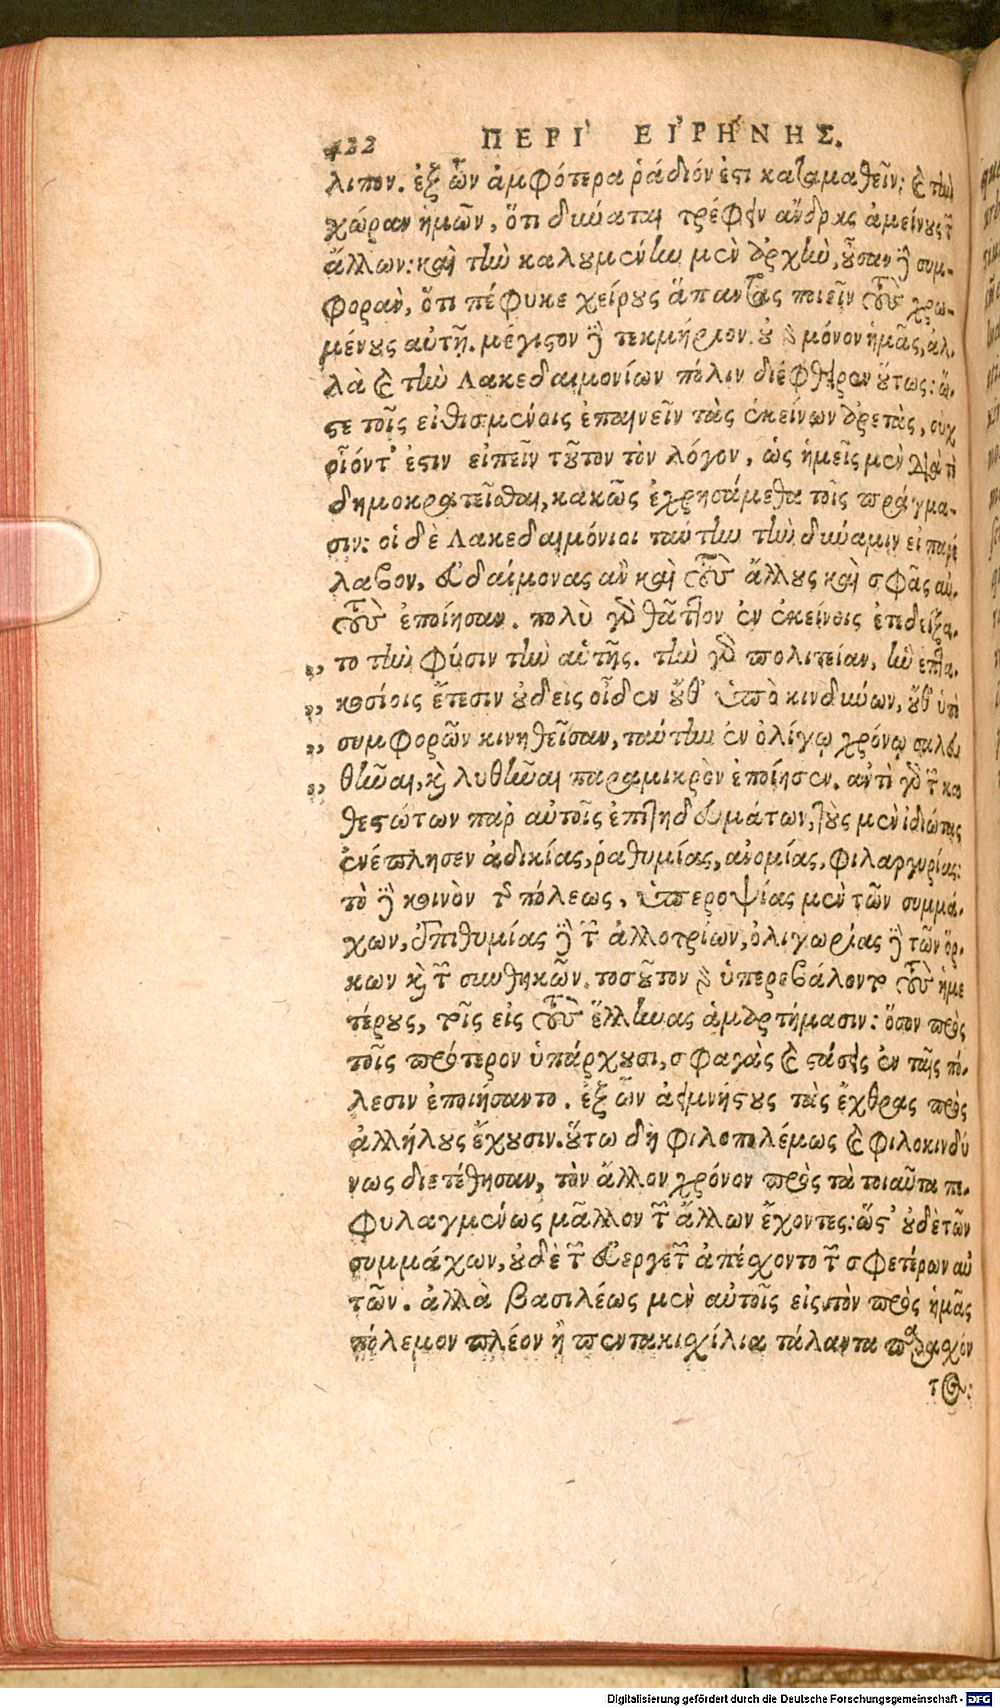 122 ΠΕΡΙ ΕΙΡΗΝΗΣ.
λιπον. ἐξ ὧν ἀμφότερα ῥᾴδιόν ἐστι καταμαθεῖν, καὶ τὴν
χώραν ἡμῶν, ὅτι δύναται τρέφειν ἄνδρας ἀμείνους τῶν
ἄλλων: καὶ τὴν καλουμένην μὲν ἀρχὴν, οὖσαν δὲ συμ-
φορὰν, ὅτι πέφυκε χείρους ἅπαντας ποιεῖν τοὺς χρω-
μένους αὐτῇ. μέγιστον δὲ τεκμήριον. οὐ γὰρ μόνον ἡμᾶς, ἀλ-
λὰ καὶ τὴν Λακεδαιμονίων πόλιν διέφθειρεν οὕτως: ὥ-
στε τοῖς εἰθισμένοις ἐπαινεῖν τὰς ἐκείνων ἀρετὰς, οὐχ
οἷόντ' ἐστιν εἰπεῖν τοῦτον τὸν λόγον, ὡς ἡμεῖς μὲν διὰ τὸ
δημοκρατεῖσθαι, κακῶς ἐχρησάμεθα τοῖς πράγμα-
σιν: οἱ δὲ Λακεδαιμόνιοι ταύτην τὴν δύναμιν εἰ παρέ
λαβον, εὐδαίμονας ἂν καὶ τοὺς ἄλλους καὶ σφᾶς αὐ-
τοὺς ἐποίησαν. πολὺ γὰρ θᾶττον ἐν ἐκείνοις ἐπεδείξα-
το τὴν φύσιν τὴν αὑτῆς. τὴν γὰρ πολιτείαν, ἣν ἐπτα-
κοσίοις ἔτεσιν οὐδεὶς οἶδεν οὔθ' ὑπὸ κινδύνων, οὔθ' ὑπὸ
συμφορῶν κινηθεῖσαν, ταύτην ἐν ὀλίγῳ χρόνῳ σαλευ
θῆναι, καὶ λυθῆναι παραμικρὸν ἐποίησεν. ἀντὶ γὰρ τῶν κα
θεστώτων παρ' αὐτοῖς ἐπιτηδευμάτων, τοὺς μὲν ἰδιώτας
ἐνέπλησεν ἀδικίας, ῥαθυμίας, ἀνομίας, φιλαργυρίας:
τὸ δὲ κοινὸν τῆς πόλεως, ὑπεροψίας μὲν τῶν συμμά-
χων, ἐπιθυμίας δὲ τῶν ἀλλοτρίων, ὀλιγωρίας δὲ τῶν ὅρ-
κων καὶ τῶν συνθηκῶν. τοσοῦτον γὰρ ὑπερεβάλοντο τοὺς ἡμε
τέρους, τοῖς εἰς τοὺς ἕλληνας ἁμαρτήμασιν: ὅσον πρὸς
τοῖς πρότερον ὑπάρχουσι, σφαγὰς καὶ στάσεις ἐν ταῖς πό-
λεσιν ἐποιήσαντο. ἐξ ὧν ἀειμνήστους τὰς ἔχθρας πρὸς
ἀλλήλους ἔχουσιν. οὕτω δὴ φιλοπολέμως καὶ φιλοκινδύ
νως διετέθησαν, τὸν ἄλλον χρόνον πρὸς τὰ τοιαῦτα πε-
φυλαγμένως μᾶλλον τῶν ἄλλων ἔχοντες: ὥστ' οὐδὲ τῶν
συμμάχων, οὐδὲ τῶν εὐεργετῶν ἀπέσχοντο τῶν σφετέρων αὐ
τῶν. ἀλλὰ βασιλέως μὲν αὐτοῖς εἰς τὸν πρὸς ἡμᾶς
πόλεμον πλέον ἢ πεντακισχίλια τάλαντα παρασχόν
τος:
Digitalisierung gefördert durch die Deutsche Forschungsgemeinschaft - DFG